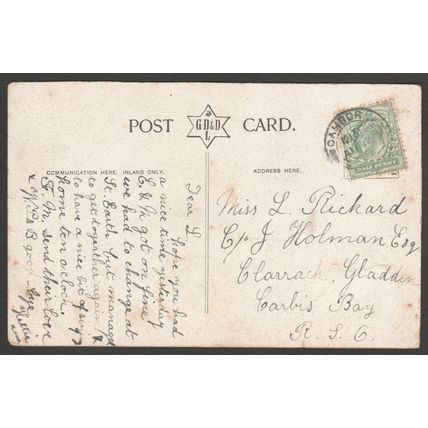 POST CARD.
G.D.&D.
L
COMMUNICATION HERE. INLAND ONLY.
ADDRESS HERE.
CAMBOR
HALF PENNY
Dear L
hope you had
a nice time yesterday
C. & M. got on fine
we had to change at
St Earth but managed
to get together again &
to have a nice bit of sing
home 10 oclock
F. M. send their love
Good bye
Nellie
Miss L. Rickard
C/o J Holman Esq
Clarrack, Gladden
Carbis Bay
R. S. O.